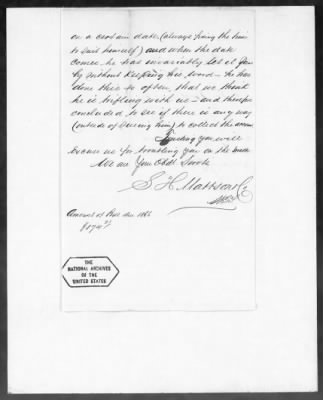 on a certain date (always fixing the time
to suit himself) and when the date
comes he has invariably let it pass
by without keeping his word – he has
done this so often, that we think
he is trifling with us – and therefore
concluded to see if there is any way
(outside of sueing him) to collect the
Trusting you will
excuse us for troubling you on the
We are Your Obdt Servts
S. H. Mattson & Co
Amount of Bill due 1866
$174
THE
NATIONAL ARCHIVES
OF THE
UNITED STATES